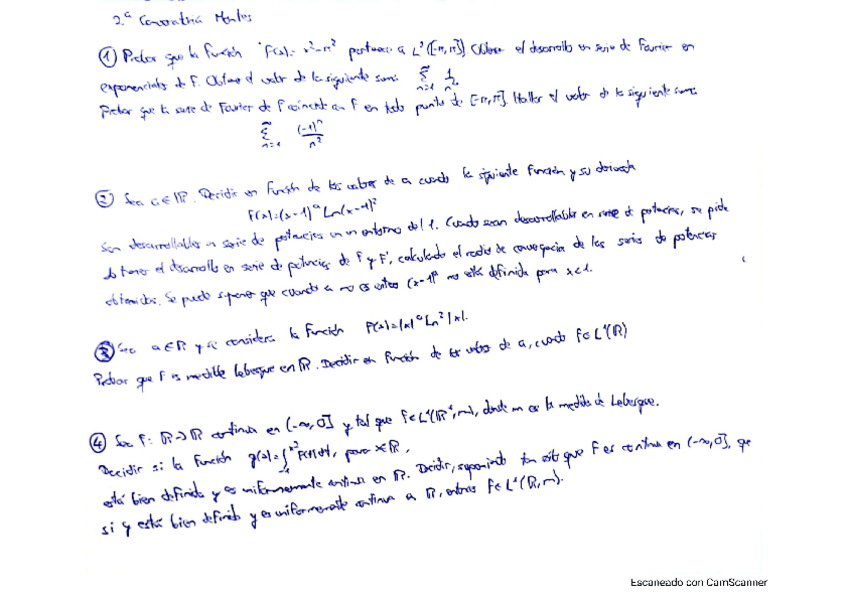 2.ª Convocatoria Montes
① Probar que la función f(x)= x²-π² pertenece a L²([-π,π]) Obtener el desarrollo en serie de Fourier en
exponenciales de f. Obtener el valor de la siguiente suma: ∞Σn=1 1/n²
Probar que la serie de Fourier de f coincide con f en todo punto de [-π,π]. Hallar el valor de la siguiente suma
∞Σn=1 (-1)ⁿ/n²
② Sea a∈ℝ. Decidir en función de los valores de a cuando la siguiente función y su derivada
f(x)=(x-1)ᵃ Ln(x-1)²
son desarrollables en serie de potencias en un entorno del 1. Cuando sean desarrollables en serie de potencias, se pide
obtener el desarrollo en serie de potencias de f y f', calculando el radio de convergencia de las series de potencias
obtenidas. Se puede suponer que cuando a no es entero (x-1)ᵃ no está definida para x<1.
③ Sea a∈ℝ y se considera la función f(x)=|x|ᵃ Ln²|x|.
Probar que f es medible Lebesgue en ℝ. Decidir en función de los valores de a, cuando f∈L¹(ℝ)
④ Sea f: ℝ→ℝ continua en (-∞,0] y tal que f∈L¹(ℝ⁺,m), donde m es la medida de Lebesgue.
Decidir si la función g(x)=∫ f(t)dt, para x∈ℝ,
está bien definida y es uniformemente continua en ℝ. Decidir, suponiendo tan solo que f es continua en (-∞,0], que
si g está bien definida y es uniformemente continua en ℝ, entonces f∈L¹(ℝ,m).
Escaneado con CamScanner